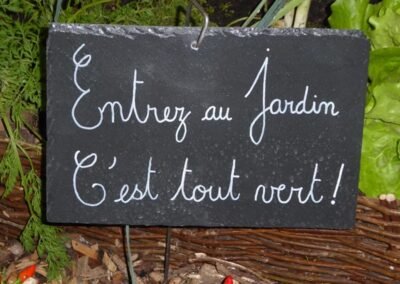 Entrez au Jardin
C'est tout vert !